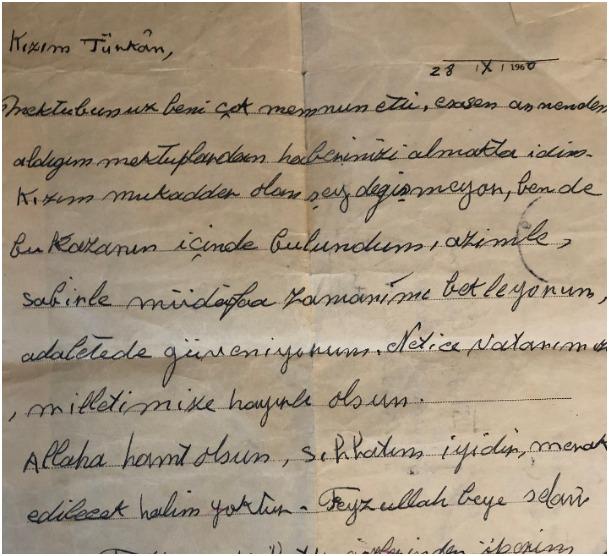 Kızım Türkân,
28 / X / 1960
Mektubunuz beni çok memnun etti, esasen annenden
aldığım mektuplardan haberinizi almakta idim.
Kızım mukadder olan şey değişmeyor, ben de
bu kazanın içinde bulundum, azimle,
sabirle müdafaa zamanimi bekleyorum,
adaletede güveniyorum. Netice vatanımıza
, milletimize hayırlı olsun.
Allaha hamt olsun, sıhhatım iyidir, merak
edilecek halim yoktur. Feyzullah beye selâm